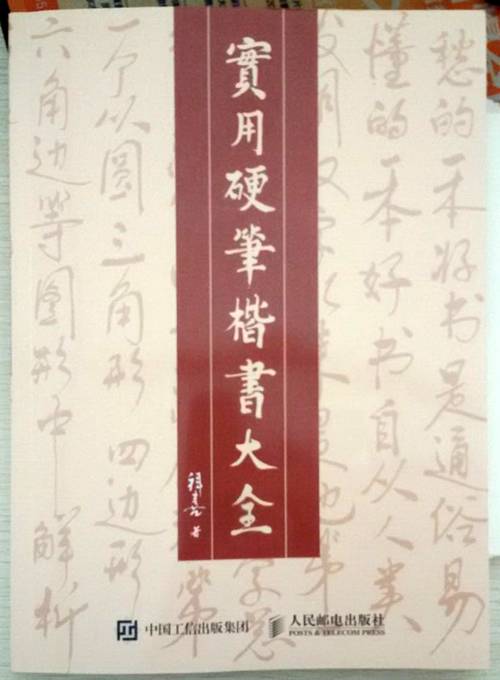 實用硬筆楷書大全
著
愁的一本好书是通俗易
懂的一本好书自从人类
一个以圆三角形四边形
六角边等图形中解析
中国工信出版集团
人民邮电出版社
POSTS & TELECOM PRESS